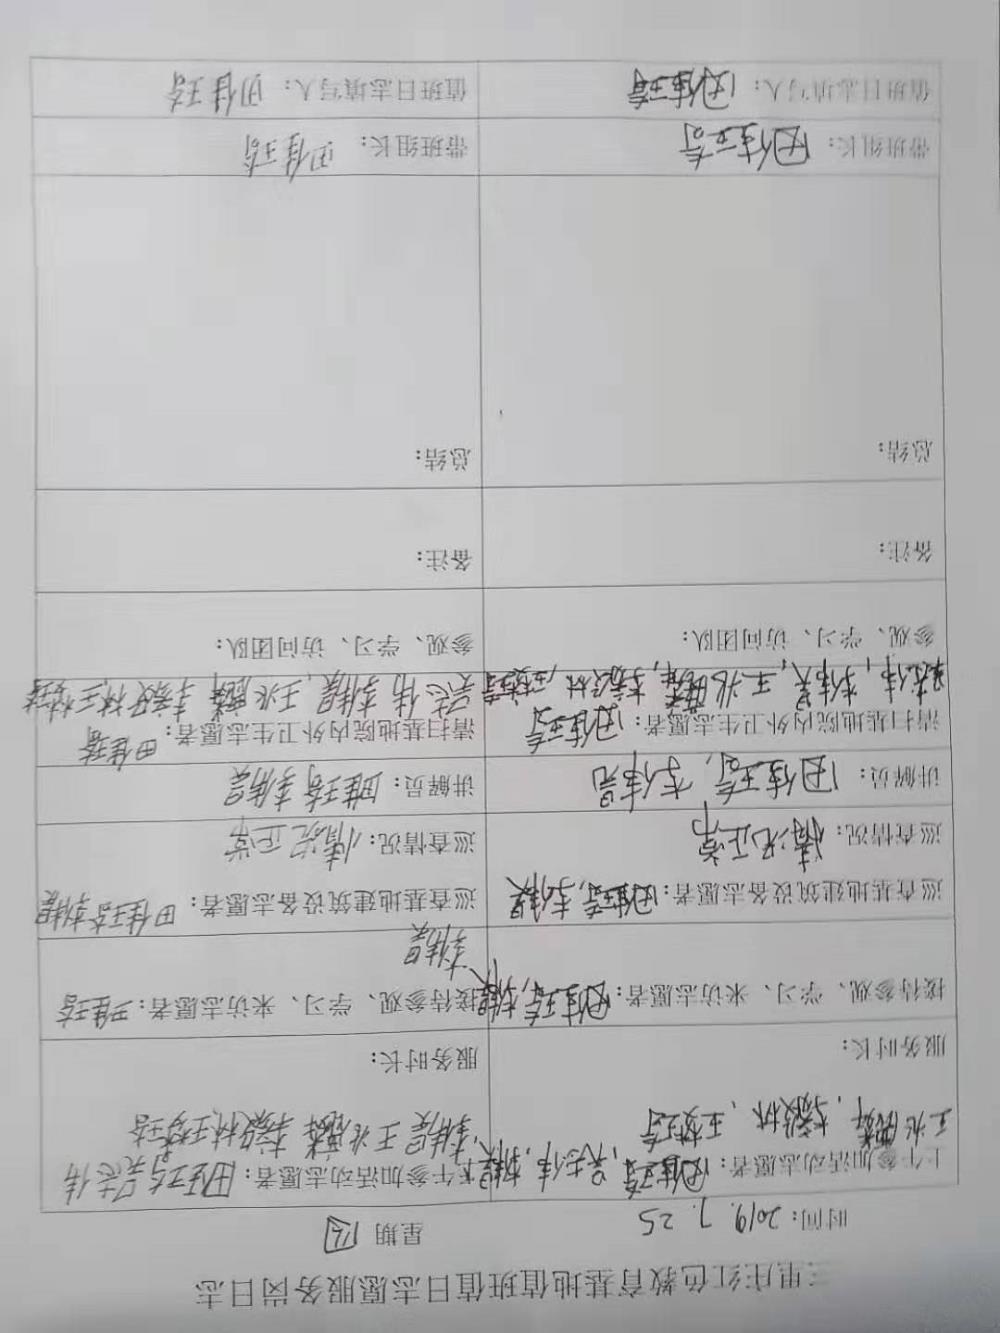 三里庄红色教育基地值班值日志愿服务岗日志
时间：2019.7.25 星期四
上午参加活动志愿者：田佳琦，李伟昊，吴志伟，
王兆麒麟，李毅林，王梦琦
下午参加活动志愿者：田佳琦吴志伟
李伟昊王兆麒麟李毅林王梦琦
服务时长：
服务时长：
接待参观、学习、来访志愿者：田佳琦，李伟昊
接待参观、学习、来访志愿者：田佳琦
李伟昊
巡查基地建筑设备志愿者：田佳琦，李伟昊
巡查情况：情况正常
巡查基地建筑设备设备志愿者：田佳琦李伟昊
巡查情况：情况正常
讲解员：田佳琦，李伟昊
讲解员：田佳琦李伟昊
清扫基地院内外卫生志愿者：田佳琦
吴志伟，李伟昊，王兆麒麟，李毅林，王梦琦
清扫基地院内外卫生志愿者：田佳琦
吴志伟 李伟昊，王兆麒麟 李毅林王梦琦
参观、学习、访问团队：
参观、学习、访问团队：
备注：
备注：
总结：
总结：
带班组长：田佳琦
带班组长：田佳琦
值班日志填写人：田佳琦
值班日志填写人：田佳琦